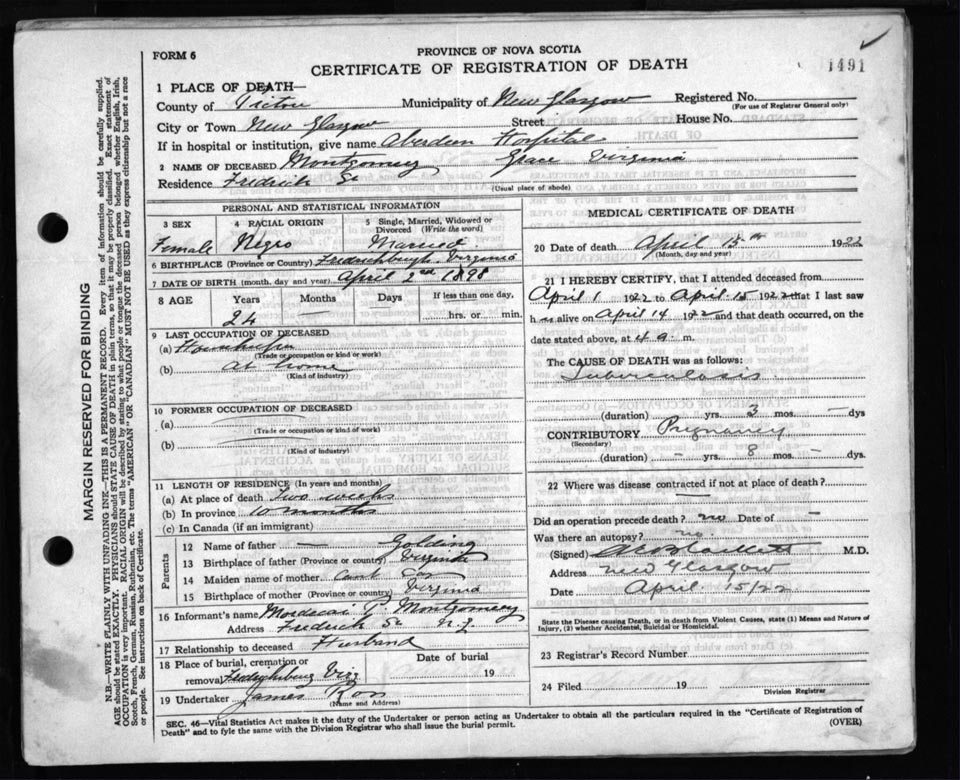 FORM 6
PROVINCE OF NOVA SCOTIA
CERTIFICATE OF REGISTRATION OF DEATH
1491
1 PLACE OF DEATH—
County of Pictou Municipality of New Glasgow Registered No.
(For use of Registrar General only)
City or Town New Glasgow Street House No.
If in hospital or institution, give name Aberdeen Hospital
2 NAME OF DECEASED Montgomery Grace Virginia
Residence Fredrick St
(Usual place of abode)
PERSONAL AND STATISTICAL INFORMATION
3 SEX 4 RACIAL ORIGIN 5 Single, Married, Widowed or Divorced (Write the word)
Female Negro Married
6 BIRTHPLACE (Province or Country) Fredrichburgh Virginia
7 DATE OF BIRTH (month, day and year) April 2nd 1898
8 AGE Years Months Days If less than one day,
24 — hrs. or min.
9 LAST OCCUPATION OF DECEASED
(a)
(Trade or occupation or kind or work)
(b) At home
(Kind of industry)
10 FORMER OCCUPATION OF DECEASED
(a)
(Trade or occupation or kind of work)
(b)
(Kind of industry)
11 LENGTH OF RESIDENCE (In years and months)
(a) At place of death Two weeks
(b) In province 10 months
(c) In Canada (if an immigrant)
Parents
12 Name of father — Golding
13 Birthplace of father (Province or country) Virginia
14 Maiden name of mother
15 Birthplace of mother (Province or country) Virginia
16 Informant's name Mordecai P. Montgomery
Address Fredrick St N.G.
17 Relationship to deceased Husband
18 Place of burial, cremation or removal Date of burial
Virg 19
19 Undertaker James Ross
(Name and Address)
MEDICAL CERTIFICATE OF DEATH
20 Date of death April 15th 1922
(Month, day and year)
21 I HEREBY CERTIFY, that I attended deceased from
April 1 1922 to April 15 1922 that I last saw
h alive on April 14 1922 and that death occurred, on the
date stated above, at 4 a. m.
The CAUSE OF DEATH was as follows:
Tuberculosis
(duration) yrs. 3 mos. — dys
CONTRIBUTORY Pregnancy
(Secondary)
(duration) — yrs. 8 mos. — dys.
22 Where was disease contracted if not at place of death?
—
Did an operation precede death? no Date of —
Was there an autopsy? no.
(Signed) M.D.
Address New Glasgow
Date April 15/22
State the Disease causing Death, or in death from Violent Causes, state (1) Means and Nature of
Injury, (2) whether Accidental, Suicidal or Homicidal.
23 Registrar's Record Number
24 Filed 19
Division Registrar
SEC. 46—Vital Statistics Act makes it the duty of the Undertaker or person acting as Undertaker to obtain all the particulars required in the "Certificate of Registration of
Death" and to fyle the same with the Division Registrar who shall issue the burial permit. (OVER)
MARGIN RESERVED FOR BINDING
N.B.—WRITE PLAINLY WITH UNFADING INK—THIS IS A PERMANENT RECORD. Every item of information should be carefully supplied.
AGE should be stated EXACTLY. PHYSICIANS should STATE CAUSE OF DEATH in plain terms, so that it may be properly classified. Exact statement of
OCCUPATION is very important. RACIAL ORIGIN will be described by stating to what people or tongue the deceased person belonged whether English, Irish,
Scotch, French, German, Russian, Ruthenian, etc. The terms "AMERICAN" or "CANADIAN" MUST NOT BE USED as they express citizenship but not a race
or people. See instructions on back of Certificate.